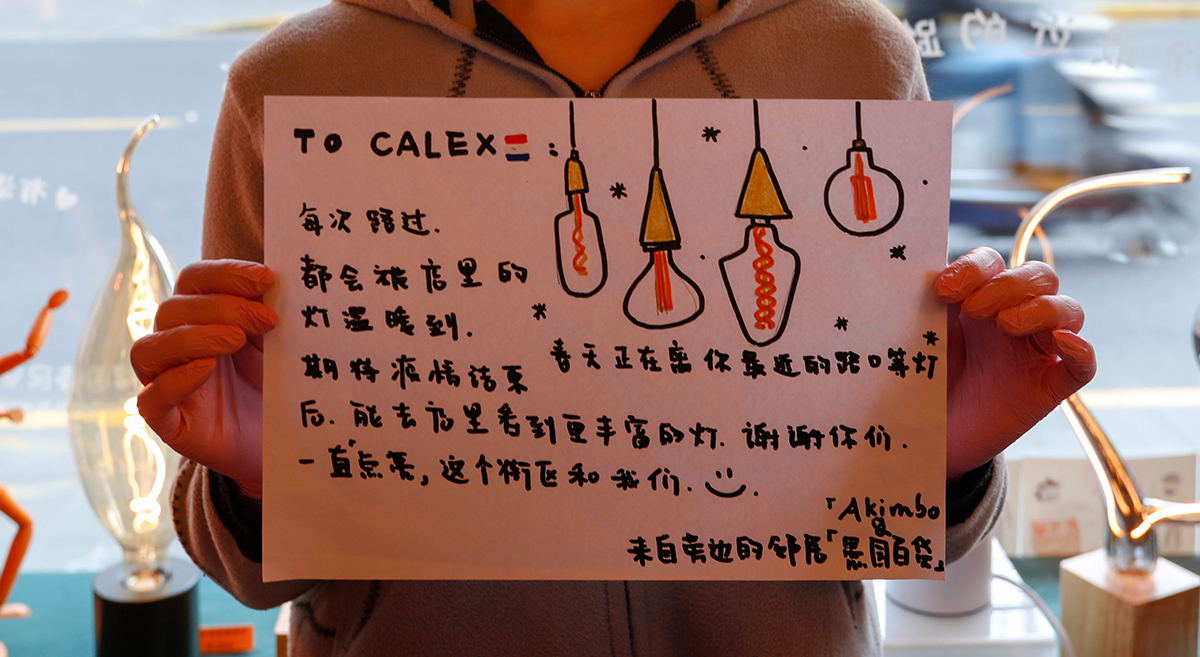 TO CALEX :
每次路过.
都会被店里的
灯温暖到.
期待疫情结束
春天正在离你最近的路口等灯
后.能去店里看到更丰富的灯.谢谢你们.
一直点亮,这个街区和我们.
「Akimbo
&
来自旁边的邻居「黑目百货」